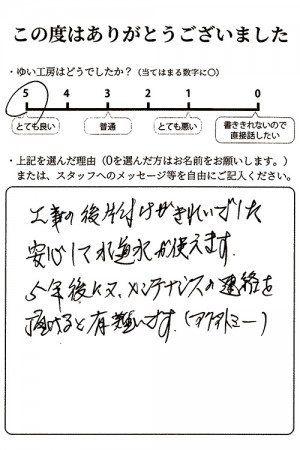 この度はありがとうございました
・ゆい工房はどうでしたか？（当てはまる数字に〇）
5 4 3 2 1 0
とても良い 普通 とても悪い 書ききれないので直接話したい
・上記を選んだ理由（0を選んだ方はお名前をお願いします。）
または、スタッフへのメッセージ等を自由にご記入ください。
工事の後片付けがきれいでした
安心して水道水が使えます。
5年後に又、メンテナンスの連絡を
頂けると有難いです。（アクアトミー）